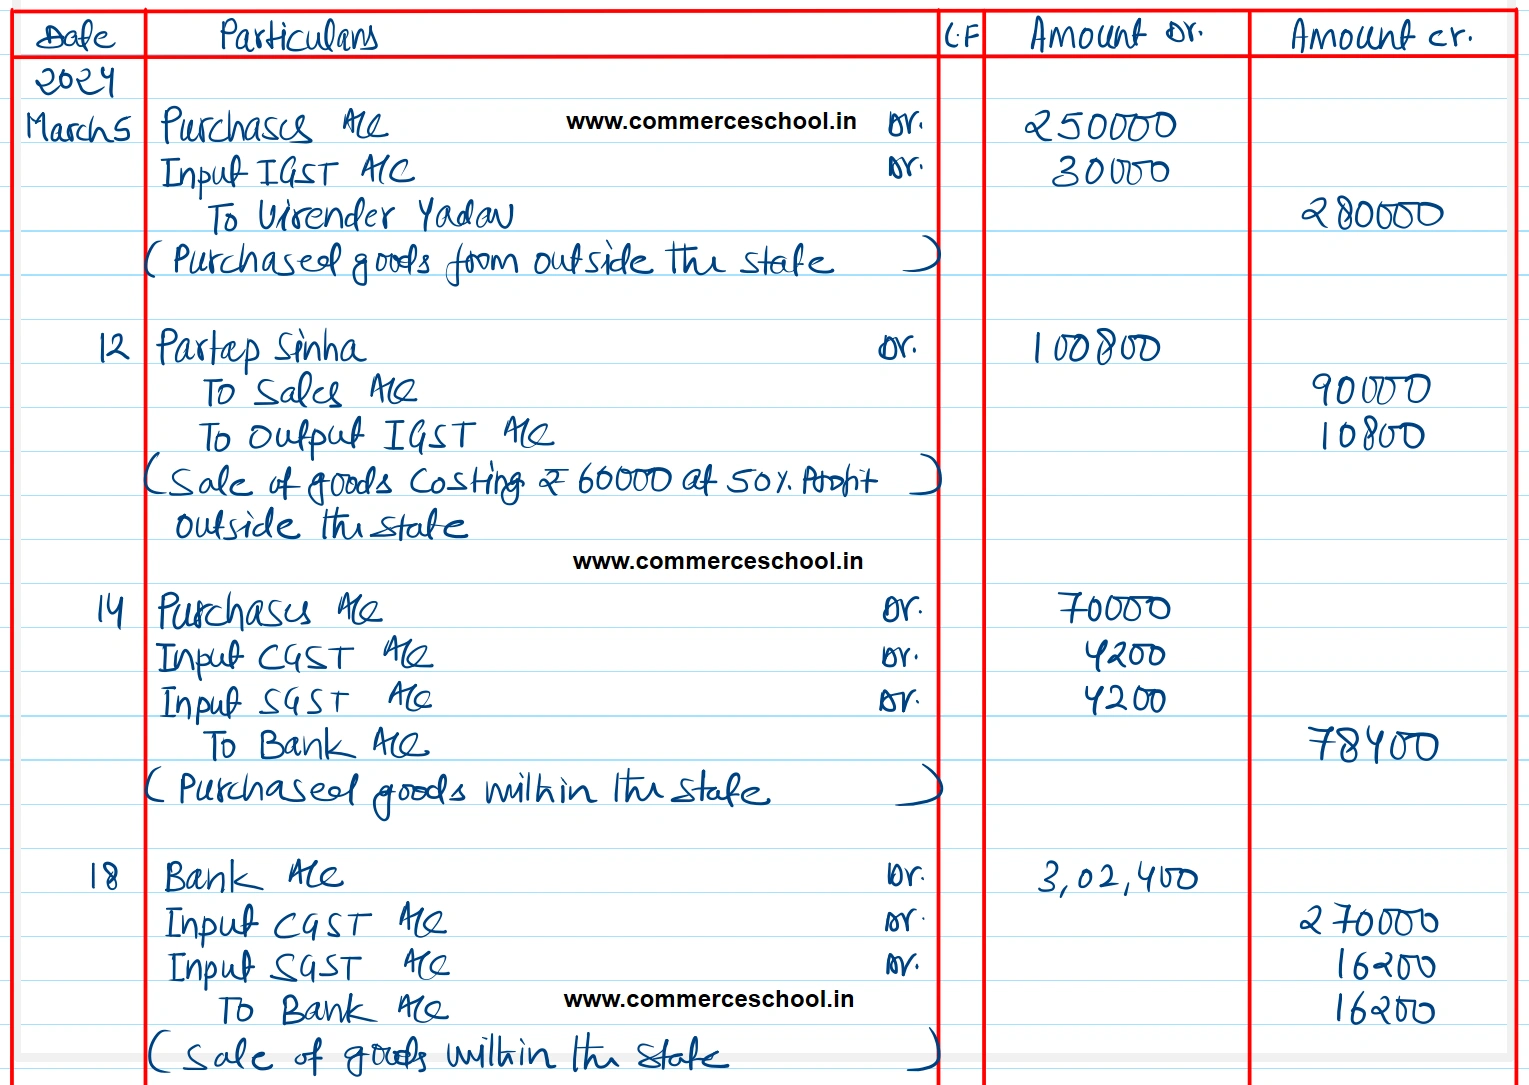 Date Particulars L.F Amount Dr. Amount cr.
2024
March 5 Purchases A/c www.commerceschool.in Dr. 250000
Input IGST A/c Dr. 30000
To Virender Yadav 280000
(Purchased goods from outside the state)
12 Partap Sinha Dr. 100800
To Sales A/c 90000
To Output IGST A/c 10800
(Sale of goods Costing ₹ 60000 at 50% Profit)
outside the state
www.commerceschool.in
14 Purchases A/c Dr. 70000
Input CGST A/c Dr. 4200
Input SGST A/c Dr. 4200
To Bank A/c 78400
(Purchased goods within the state)
18 Bank A/c Dr. 3,02,400
Input CGST A/c Dr. 270000
Input SGST A/c Dr. 16200
To Bank A/c www.commerceschool.in 16200
(Sale of goods within the state)